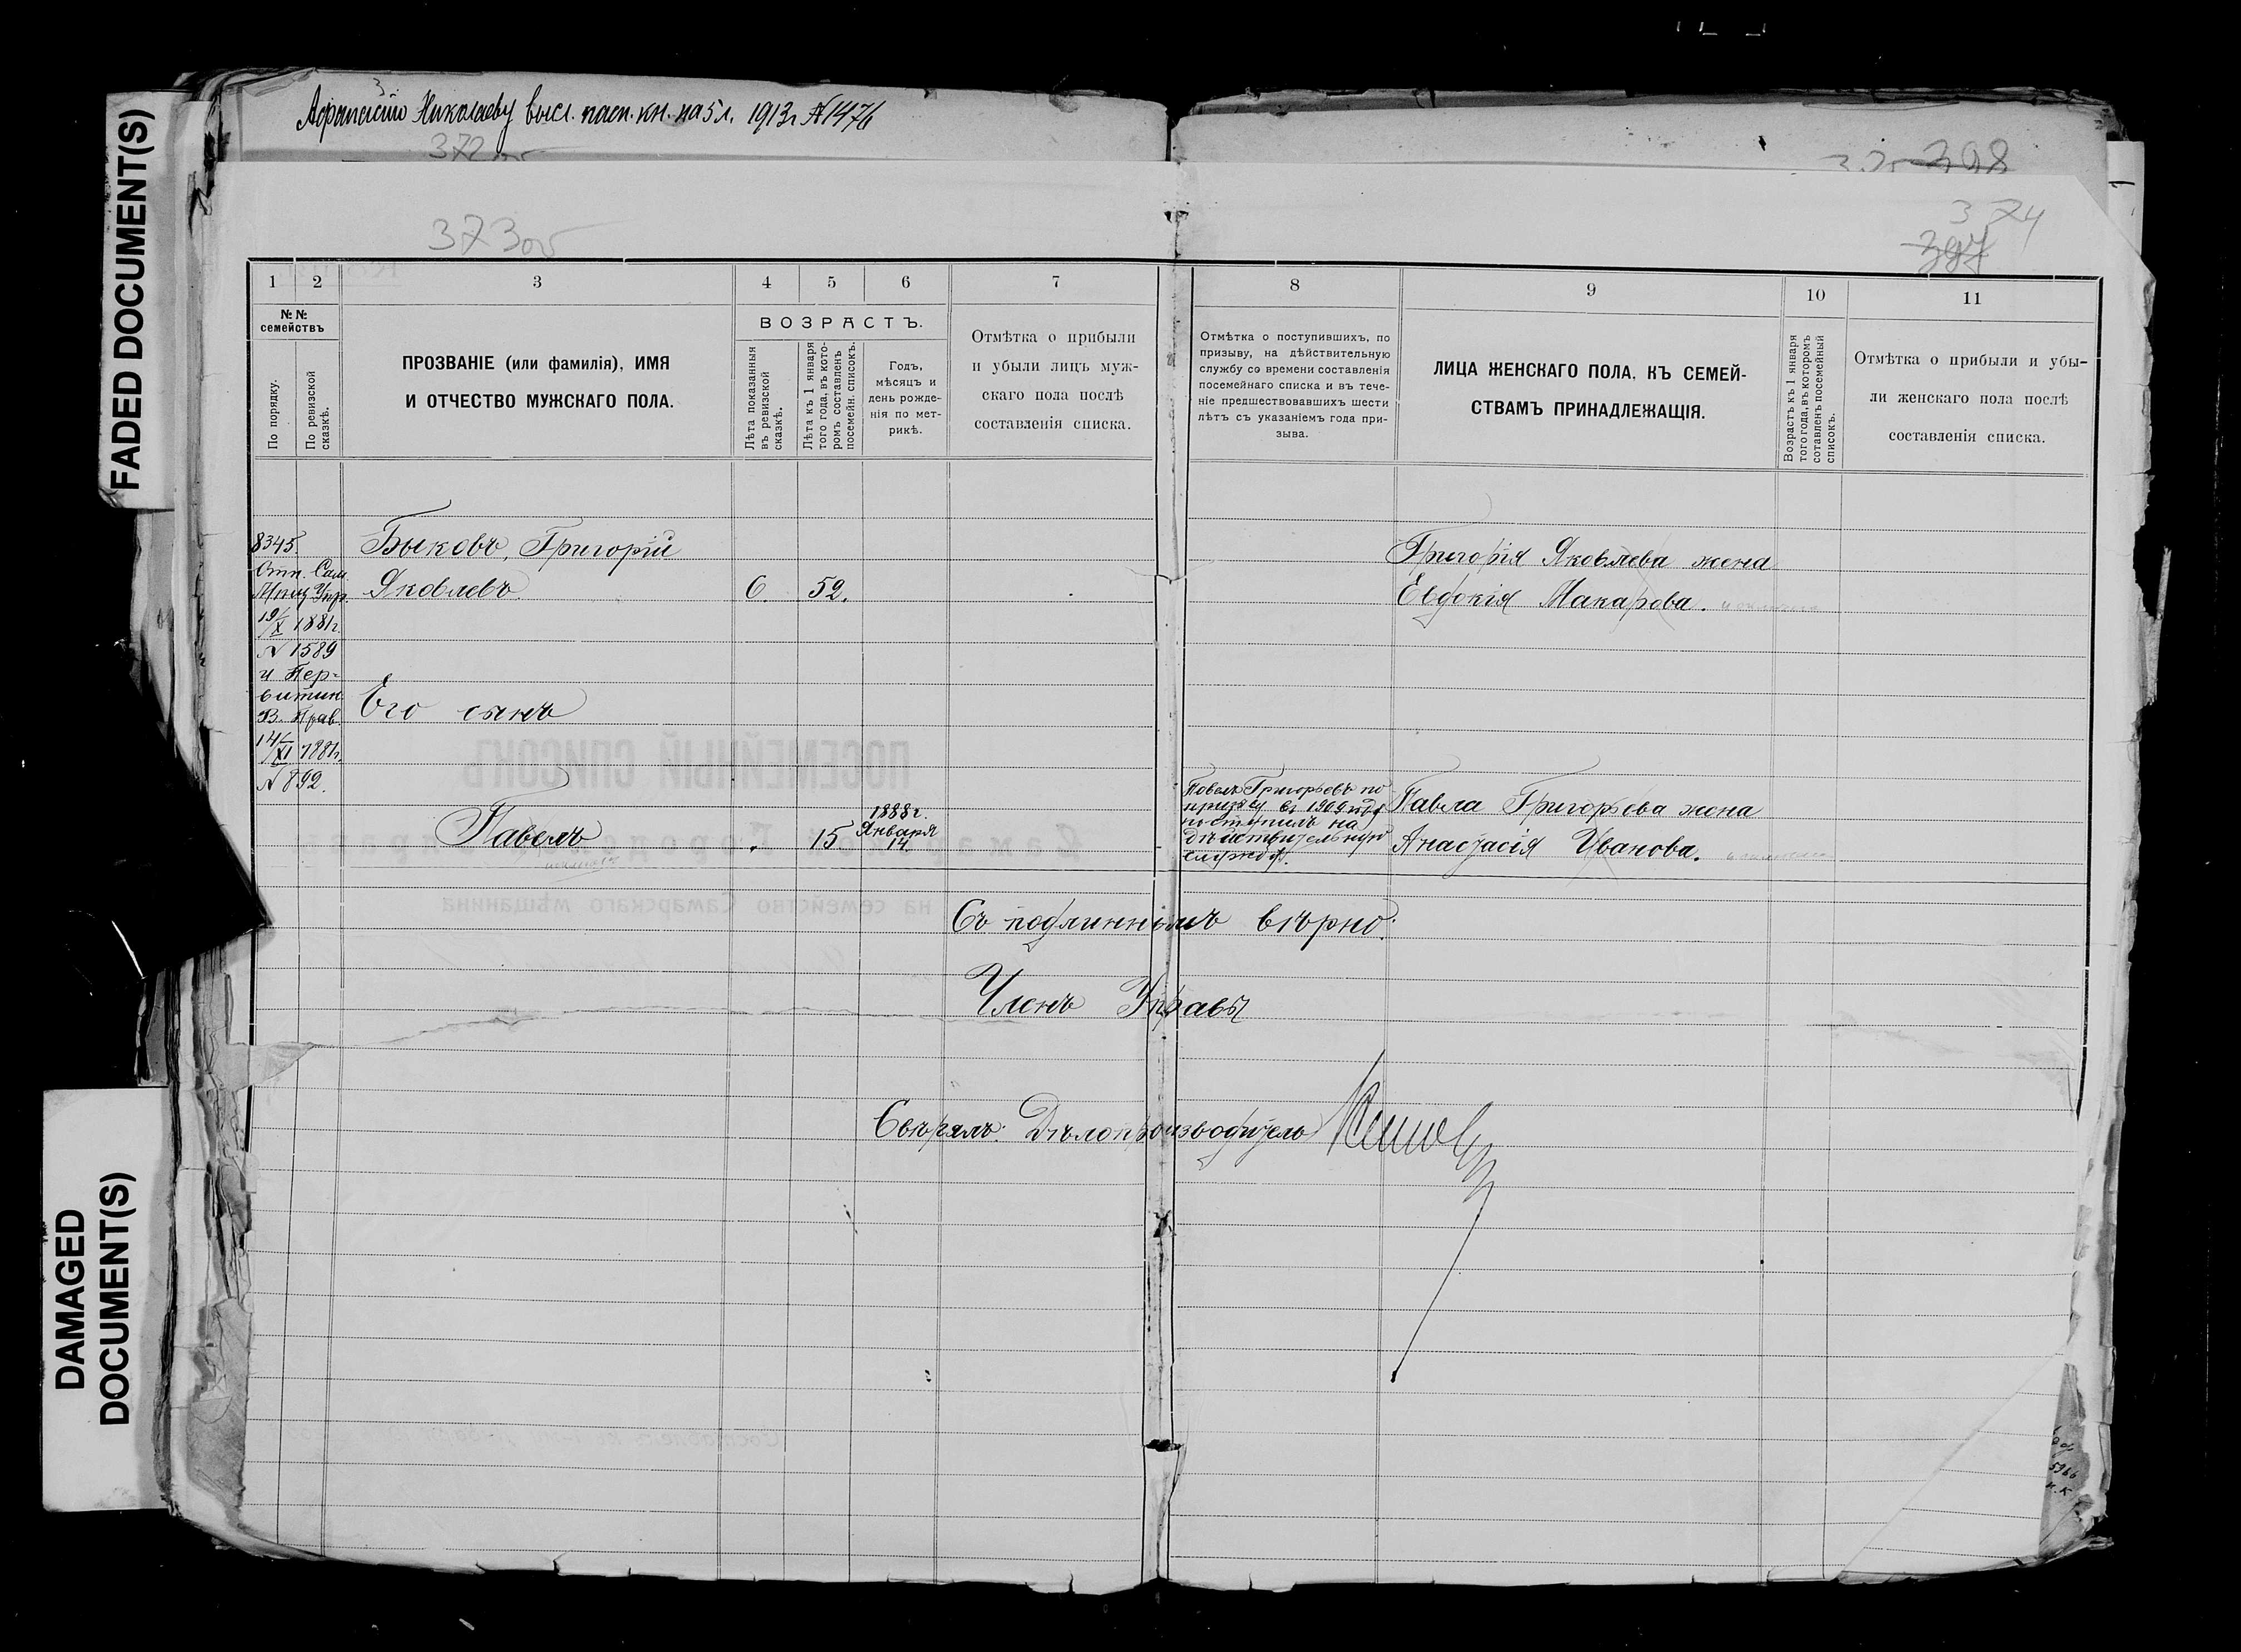 FADED DOCUMENT(S)
DAMAGED
DOCUMENT(S)
Афанасію Николаеву высл. пасп. кн. на 5 л. 1913 г. № 1476
372 об
398
373 об
374
397
1 2 3 4 5 6 7 8 9 10 11
№№
семействъ
По порядку.
По ревизской
сказкѣ.
ПРОЗВАНІЕ (или фамилія), ИМЯ
И ОТЧЕСТВО МУЖСКАГО ПОЛА.
ВОЗРАСТЪ.
Лѣта показанныя
въ ревизской
сказкѣ.
Лѣта къ 1 января
того года, въ кото-
ромъ составленъ
посемейн. списокъ.
Годъ,
мѣсяцъ и
день рожде-
нія по мет-
рикѣ.
Отмѣтка о прибыли
и убыли лицъ муж-
скаго пола послѣ
составленія списка.
Отмѣтка о поступившихъ, по
призыву, на дѣйствительную
службу со времени составленія
посемейнаго списка и въ тече-
ніе предшествовавшихъ шести
лѣтъ съ указаніемъ года при-
зыва.
ЛИЦА ЖЕНСКАГО ПОЛА, КЪ СЕМЕЙ-
СТВАМЪ ПРИНАДЛЕЖАЩІЯ.
Возрастъ къ 1 января
того года, въ которомъ
составленъ посемейный
списокъ.
Отмѣтка о прибыли и убы-
ли женскаго пола послѣ
составленія списка.
8345.
Отп. Сам.
Мѣщ. Упр.
19/X 1881 г.
№ 1589
и Пер-
витин.
В. Прав.
14/XI 1881 г.
№ 892.
Быковъ, Григорій
Яковлевъ. 6. 52.
Григорія Яковлева жена
Евдокія Макарова.
Его сынъ
Павелъ 15
1888 г.
Января
14.
Павелъ Григорьевъ по
призыву въ 1909 году
поступилъ на
дѣйствительную
службу.
Павла Григорьева жена
Анастасія Иванова.
Съ подлиннымъ вѣрно:
Членъ Управы
Свѣрялъ: Дѣлопроизводитель